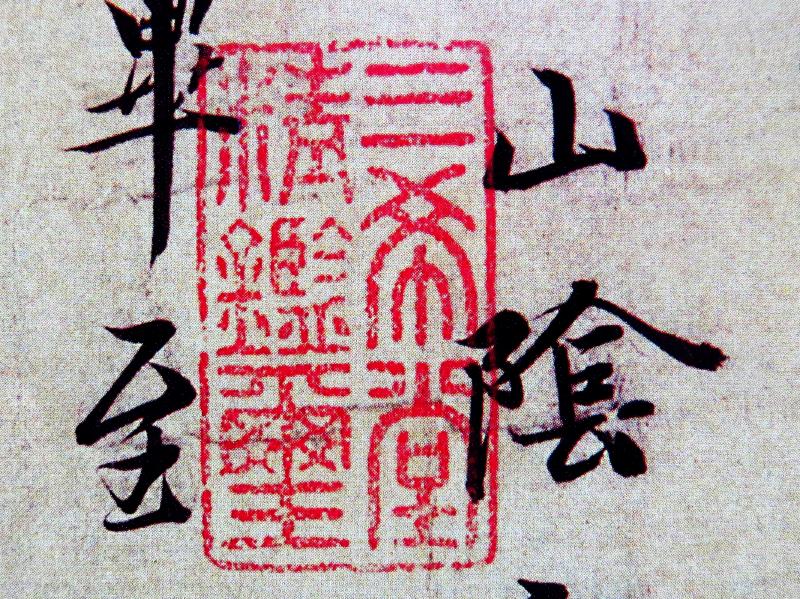 山陰
三希堂
精鑑璽
畢至